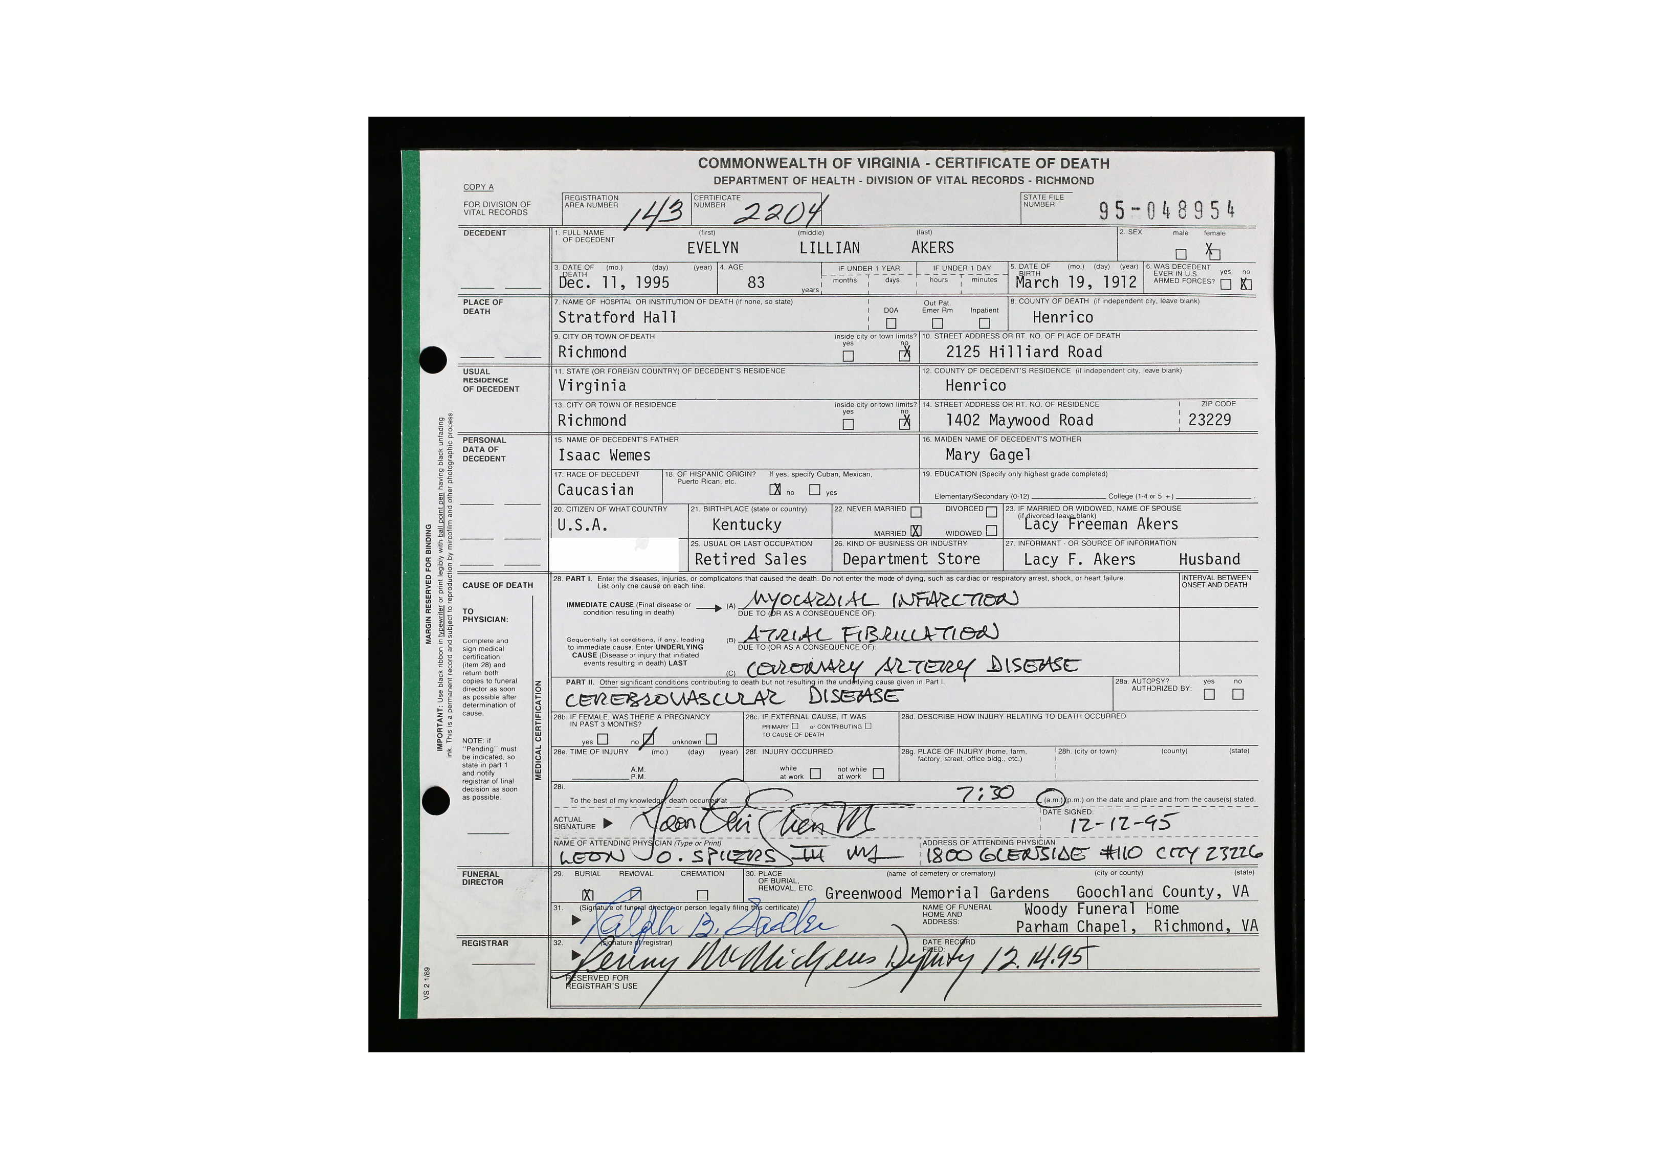 COMMONWEALTH OF VIRGINIA - CERTIFICATE OF DEATH
DEPARTMENT OF HEALTH - DIVISION OF VITAL RECORDS - RICHMOND
COPY A
FOR DIVISION OF VITAL RECORDS
REGISTRATION AREA NUMBER 143
CERTIFICATE NUMBER 2204
STATE FILE NUMBER 95-048954
DECEDENT
1. FULL NAME OF DECEDENT (first) (middle) (last)
EVELYN LILLIAN AKERS
2. SEX male female X
3. DATE OF DEATH (mo.) (day) (year)
Dec. 11, 1995
4. AGE 83 years
IF UNDER 1 YEAR months days
IF UNDER 1 DAY hours minutes
5. DATE OF BIRTH (mo.) (day) (year)
March 19, 1912
6. WAS DECEDENT EVER IN U.S. ARMED FORCES? yes no X
PLACE OF DEATH
7. NAME OF HOSPITAL OR INSTITUTION OF DEATH (if none, so state)
Stratford Hall
DOA Out Pat. Emer Rm Inpatient
8. COUNTY OF DEATH (if independent city, leave blank)
Henrico
9. CITY OR TOWN OF DEATH inside city or town limits? yes no X
Richmond
10. STREET ADDRESS OR RT. NO. OF PLACE OF DEATH
2125 Hilliard Road
USUAL RESIDENCE OF DECEDENT
11. STATE (OR FOREIGN COUNTRY) OF DECEDENT'S RESIDENCE
Virginia
12. COUNTY OF DECEDENT'S RESIDENCE (if independent city, leave blank)
Henrico
13. CITY OR TOWN OF RESIDENCE inside city or town limits? yes no X
Richmond
14. STREET ADDRESS OR RT. NO. OF RESIDENCE ZIP CODE
1402 Maywood Road 23229
PERSONAL DATA OF DECEDENT
15. NAME OF DECEDENT'S FATHER
Isaac Wemes
16. MAIDEN NAME OF DECEDENT'S MOTHER
Mary Gagel
17. RACE OF DECEDENT
Caucasian
18. OF HISPANIC ORIGIN? If yes, specify Cuban, Mexican, Puerto Rican, etc.
X no yes
19. EDUCATION (Specify only highest grade completed)
Elementary/Secondary (0-12) College (1-4 or 5 +)
20. CITIZEN OF WHAT COUNTRY
U.S.A.
21. BIRTHPLACE (state or country)
Kentucky
22. NEVER MARRIED DIVORCED
MARRIED X WIDOWED
23. IF MARRIED OR WIDOWED, NAME OF SPOUSE (if divorced leave blank)
Lacy Freeman Akers
25. USUAL OR LAST OCCUPATION
Retired Sales
26. KIND OF BUSINESS OR INDUSTRY
Department Store
27. INFORMANT - OR SOURCE OF INFORMATION
Lacy F. Akers Husband
CAUSE OF DEATH
TO PHYSICIAN:
Complete and sign medical certification (item 28) and return both copies to funeral director as soon as possible after determination of cause.
NOTE: if "Pending" must be indicated, so state in part 1 and notify registrar of final decision as soon as possible.
MEDICAL CERTIFICATION
28. PART I. Enter the diseases, injuries, or complicatons that caused the death. Do not enter the mode of dying, such as cardiac or respiratory arrest, shock, or heart failure. List only one cause on each line.
INTERVAL BETWEEN ONSET AND DEATH
IMMEDIATE CAUSE (Final disease or condition resulting in death) (A) MYOCARDIAL INFARCTION
DUE TO (OR AS A CONSEQUENCE OF):
Sequentially list conditions, if any, leading to immediate cause. Enter UNDERLYING CAUSE (Disease or injury that initiated events resulting in death) LAST
(B) ATRIAL FIBRILLATION
DUE TO (OR AS A CONSEQUENCE OF):
(C) CORONARY ARTERY DISEASE
PART II. Other significant conditions contributing to death but not resulting in the underlying cause given in Part I.
CEREBROVASCULAR DISEASE
28a. AUTOPSY? AUTHORIZED BY: yes no
28b. IF FEMALE, WAS THERE A PREGNANCY IN PAST 3 MONTHS?
yes no unknown
28c. IF EXTERNAL CAUSE, IT WAS
PRIMARY or CONTRIBUTING
TO CAUSE OF DEATH
28d. DESCRIBE HOW INJURY RELATING TO DEATH OCCURRED
28e. TIME OF INJURY (mo.) (day) (year)
A.M.
P.M.
28f. INJURY OCCURRED
while at work not while at work
28g. PLACE OF INJURY (home, farm, factory, street, office bldg., etc.)
28h. (city or town) (county) (state)
28i.
To the best of my knowledge, death occurred at 7:30 (a.m.) (p.m.) on the date and place and from the cause(s) stated.
ACTUAL SIGNATURE
DATE SIGNED:
12-12-95
NAME OF ATTENDING PHYSICIAN (Type or Print)
LEON O. SPIERS III MD
ADDRESS OF ATTENDING PHYSICIAN
1800 GLENSIDE #110 CITY 23226
FUNERAL DIRECTOR
29. BURIAL REMOVAL CREMATION
X
30. PLACE OF BURIAL, REMOVAL, ETC. (name of cemetery or crematory) (city or county) (state)
Greenwood Memorial Gardens Goochland County, VA
31. (Signature of funeral director or person legally filing this certificate)
Ralph B. Sadler
NAME OF FUNERAL HOME AND ADDRESS:
Woody Funeral Home
Parham Chapel, Richmond, VA
REGISTRAR
32. (Signature of registrar)
Penny McMichens Deputy
DATE RECORD FILED:
12.14.95
RESERVED FOR REGISTRAR'S USE
MARGIN RESERVED FOR BINDING
IMPORTANT: Use black ribbon in typewriter or print legibly with ball point pen having black unfading ink. This is a permanent record and subject to reproduction by microfilm and other photographic process
VS 2 1/89